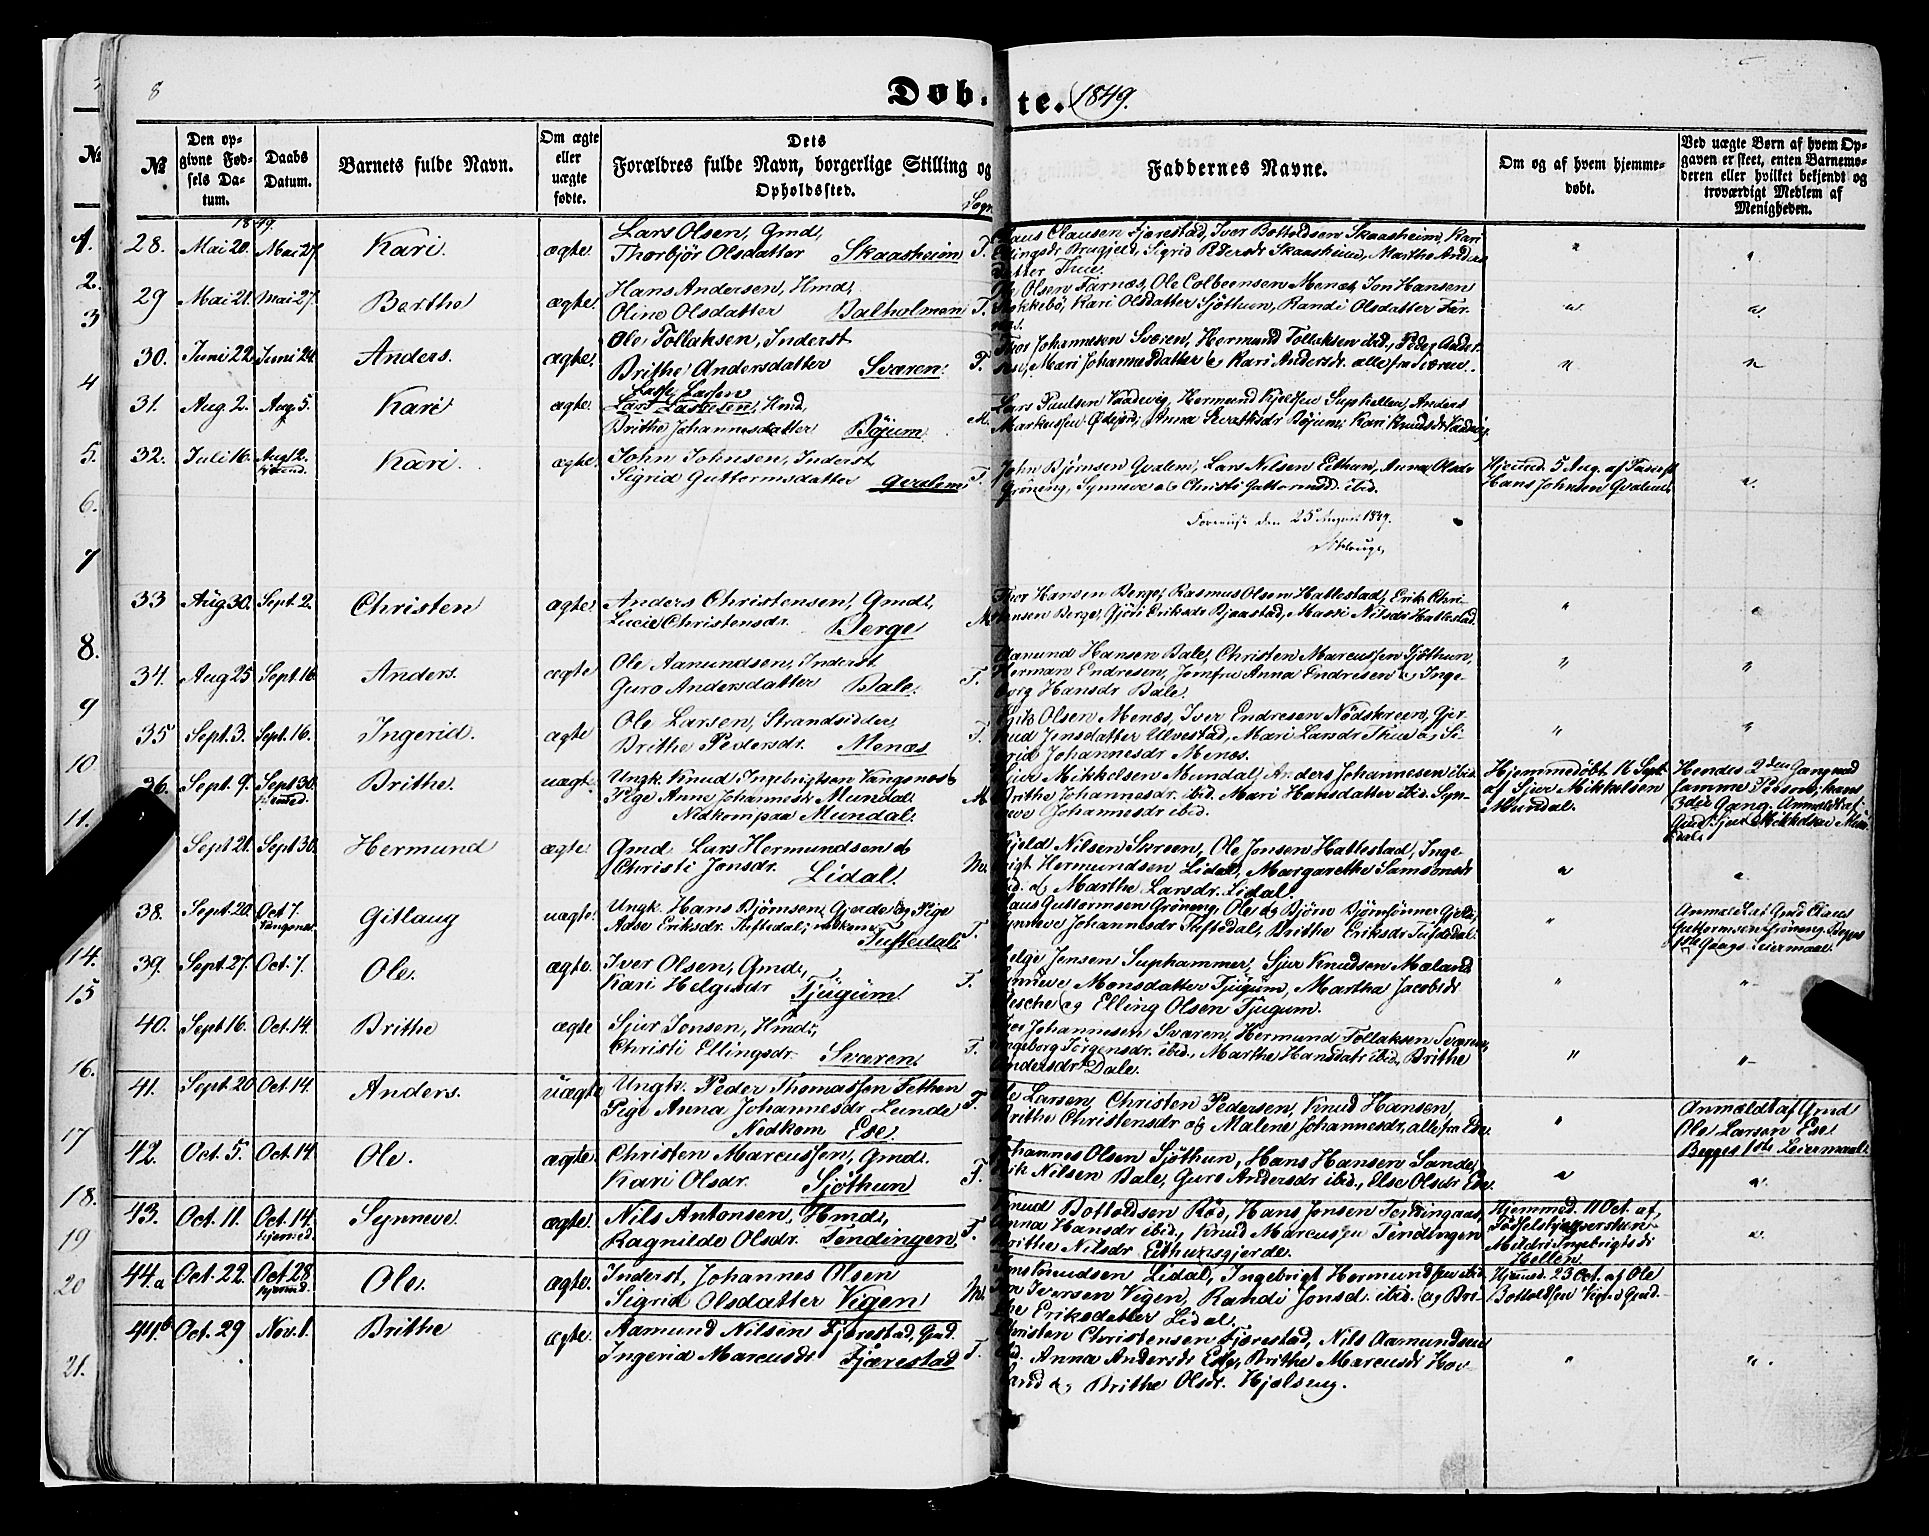 8
Døb-te. 1849.
№
Den opgivne Fødsels Datum.
Daabs Datum.
Barnets fulde Navn.
Om ægte eller uægte fødte.
Dets Forældres fulde Navn, borgerlige Stilling og Opholdssted.
Sogn
Faddernes Navne.
Om og af hvem hjemmedøbt.
Ved uægte Børn af hvem Opgaven er skeet, enten Barnemoderen eller hvilket bekjendt og troværdigt Medlem af Menigheden.
1849.
28. Mai 20. Mai 27. Kari. ægte.
Lars Olsen, Gmd,
Thorbjör Olsdatter Skaasheim T.
Claus Clausen Fjærestad, Iver Botoldsen Skaasheim, Kari
Ellingsdr Brugjeld, Sigrid Pedersdr Skaasheim, Marthe Anders
datter Thue.
29 Mai 21. Mai 27. Berthe ægte.
Hans Andersen, Hmd,
Oline Olsdatter Balholmen T.
Olsen Farnæs, Ole Colbeensen Menæs, Jon Hansen
Kari Olsdatter Sjöthun, Randi Olsdatter Far-
30. Juni 22. Juni 24. Anders. ægte.
Ole Tollaksen, Inderst
Brithe Andersdatter Sværen. T.
Thor Johannesen Sværen, Hermund Tollaksen ibid., Peder Ander-
sen, Mari Johannesdatter & Kari Andersdr. alle fra Sværen.
31. Aug 2. Aug 5. Kari ægte.
Lasse Lassen
Hmd,
Brithe Johannesdatter Böjum M.
Lars Paulsen Hermund Kjeldsen Suphellen, Anders
Markussen Anna Böjum, Kari Knudsdr
32. Juli 16. Aug 12. Kari. ægte.
John Johnsen, Inderst
Sigrid Guttormsdatter Qvalem T.
John Björnsen Qvalem, Lars Nilsen Eithun, Anna Olsdr
Gröneng, Synneve og Christi Guttormsd. ibid.
Hjemd. 5 Aug. af
Hans Johnsen Qvalem
den 25 August 1849.
33 Aug 30. Sept. 2. Christen ægte.
Anders Christensen, Gmd,
Lucie Christensdr. Berge M.
Thor Hansen Berge, Rasmus Olsen Hattestad, Erik Chri-
stensen Berge, Gjöri Eriksdr Bjaastad, Mari Nilsdr Hattestad.
34. Aug 25 Sept. 16. Anders. ægte
Ole Aamundsen, Inderst
Guro Andersdatter Bale. T.
Aamund Hansen Bale, Christen Marcussen Sjöthun,
Herman Endresen, Jomfru Anna Endresen & Inge-
borg Hansdr Bale.
35 Sept. 3. Sept. 16. Ingerid. ægte
Ole Larsen, Strandsidder,
Brithe Pedersdr. Menæs T.
Erik Olsen Menæs, Iver Endresen Nödskreen, Gjer-
trud Jensdatter Ulvestad, Mari Larsdr Thue og Si-
grid Johannesdr Menæs.
36. Sept. 9. Sept 30. Hjemd. Brithe. uægt.
Ungk. Knud Ingebrigtsen Vangsnæs &
Pige Anne Johannesdr Mundal
Nedkom paa Mundal. M.
Sjur Mikkelsen Mundal, Anders Johannesen ibid.
Brithe Johannesdr. ibid. Mari Hansdatter ibid. Syn-
neve Johannesdr ibid.
Hjemmedöbt 16 Sept.
af Sjur Mikkelsen
Mundal.
Hendes 2den Gang med
samme Person, hans
3die Gang. Anmeldt af
Gmd Sjur Mikkelsen Mun-
dal.
Sept 21. Sept 30. Hermund ægte
Gmd Lars Hermundsen &
Christi Jonsdr. Lidal. M.
Kjeld Nilsen Skreen, Ole Jonsen Hattestad, Inge-
brigt Hermundsen Lidal, Margarethe Samsonsdr
ibid. og Marthe Larsdr. Lidal.
38. Sept. 20. Oct. 7. Vangsnæs. Gitlaug uægte.
Ungk. Hans Björnsen Gjerde og Pige
Adse Eriksdr. Tuftedal, nedkom
Tuftedal. T.
Claus Guttormsen Gröneng, Ole og Björn
Synneve Johannesdr Tuftedal, Brithe Eriksdr Tuftedal.
Anmeldt af Gmd Claus
Guttormsen Gröneng. Begges
1ste Gangs Leiermaal.
39. Sept. 27. Oct. 7. Ole. ægte.
Iver Olsen, Gmd,
Kari Helgesdr Tjugum. T.
Helge Jensen Suphammer, Sjur Knudsen Mæland
Synneve Monsdatter Tjugum, Martha Jacobsdr
Esche og Elling Olsen Tjugum.
40. Sept. 16. Oct. 14. Brithe ægte
Sjur Jonsen, Hmd,
Christi Ellingsdr. Sværen. T.
Johannesen Sværen, Hermund Tollaksen Sværen,
Ingeborg Jörgensdr. ibid., Marthe Hansdatr ibid., Brithe
Andersdr Dale.
41. Sept. 20 Oct. 14. Anders. uægte
Ungk. Peder Thomassen Fethen
Pige Anna Johannesdr Lunde
Nedkom Ese. T.
Ole Larsen, Christen Pedersen, Knud Hansen,
Brithe Christensdr og Malene Johannesdr, alle fra Ese.
Anmeldt af Gmd
Ole Larsen Ese
Begges 1ste Leiermaal.
42. Oct. 5. Oct. 14. Ole. ægte.
Christen Marcussen, Gmd.
Kari Olsdr. Sjöthun T.
Johannes Olsen Sjöthun, Hans Hansen Sande,
Erik Nilsen Bale, Guro Andersdr ibid., Else Olsdr Ese.
43. Oct. 11. Oct. 14. Hjemd. Synneve. ægte.
Nils Antonsen, Hmd,
Ragnilde Olsdr. Tendingen. T.
Knud Botoldsen Röd, Hans Jonsen
Anna Hansdr ibid., Knud Marcussen Tendingen
Brithe Nilsdr Eithunsgjerde.
Hjemmed. 11 Oct. af
Mildri Ingebrigtsdr
Hellen.
44.a Oct. 22. Oct 28 Hjemd. Ole. ægte.
Inderst, Johannes Olsen
Sigrid Olsdatter Vigen M.
Knudsen Lidal, Ingebrigt Hermundsen ibid.
Iversen Vigen, Randi Jonsd. ibid. og Bri-
the Eriksdatter Lidal.
Hjemd. 23 Oct. af Ole
Botoldsen Vigen Gmd.
44.b Oct. 29 Nov. 1. Brithe ægte.
Aamund Nilsen Fjærestad, Gmd.
Ingerid Marcusdr Fjærestad T.
Christen Christensen Fjærestad, Nils Aamundsen
ibid. Anna Andersdr Ese, Brithe Marcusdr Hov-
land og Brithe Olsdr. Hjelseng.
№
1.
2.
3
4
5.
6.
7
8.
9
10.
11.
14.
15
16.
17
18.
19
20
21.